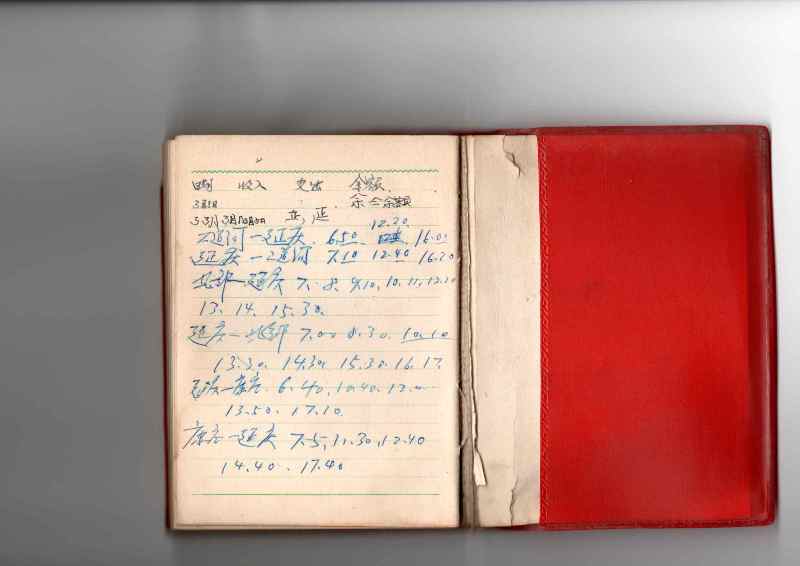 日期 收入 支出 余额
3月3日 余 余额
3月3日 3月 正
12.20
二道河—延庆 6.50 16.00
延庆—二道河 7.10 12.40 16.20
北郊—延庆 7. 8. 9.10, 10. 11. 12.20
13. 14. 15.30.
延庆—北郊 7.00 8.30. 10.10
13.30. 14.30. 15.30. 16. 17.
延庆—康庄. 6.40, 10.40. 12.
13.50. 17.10.
康庄—延庆 7.5, 11.30, 12.40
14.40. 17.40